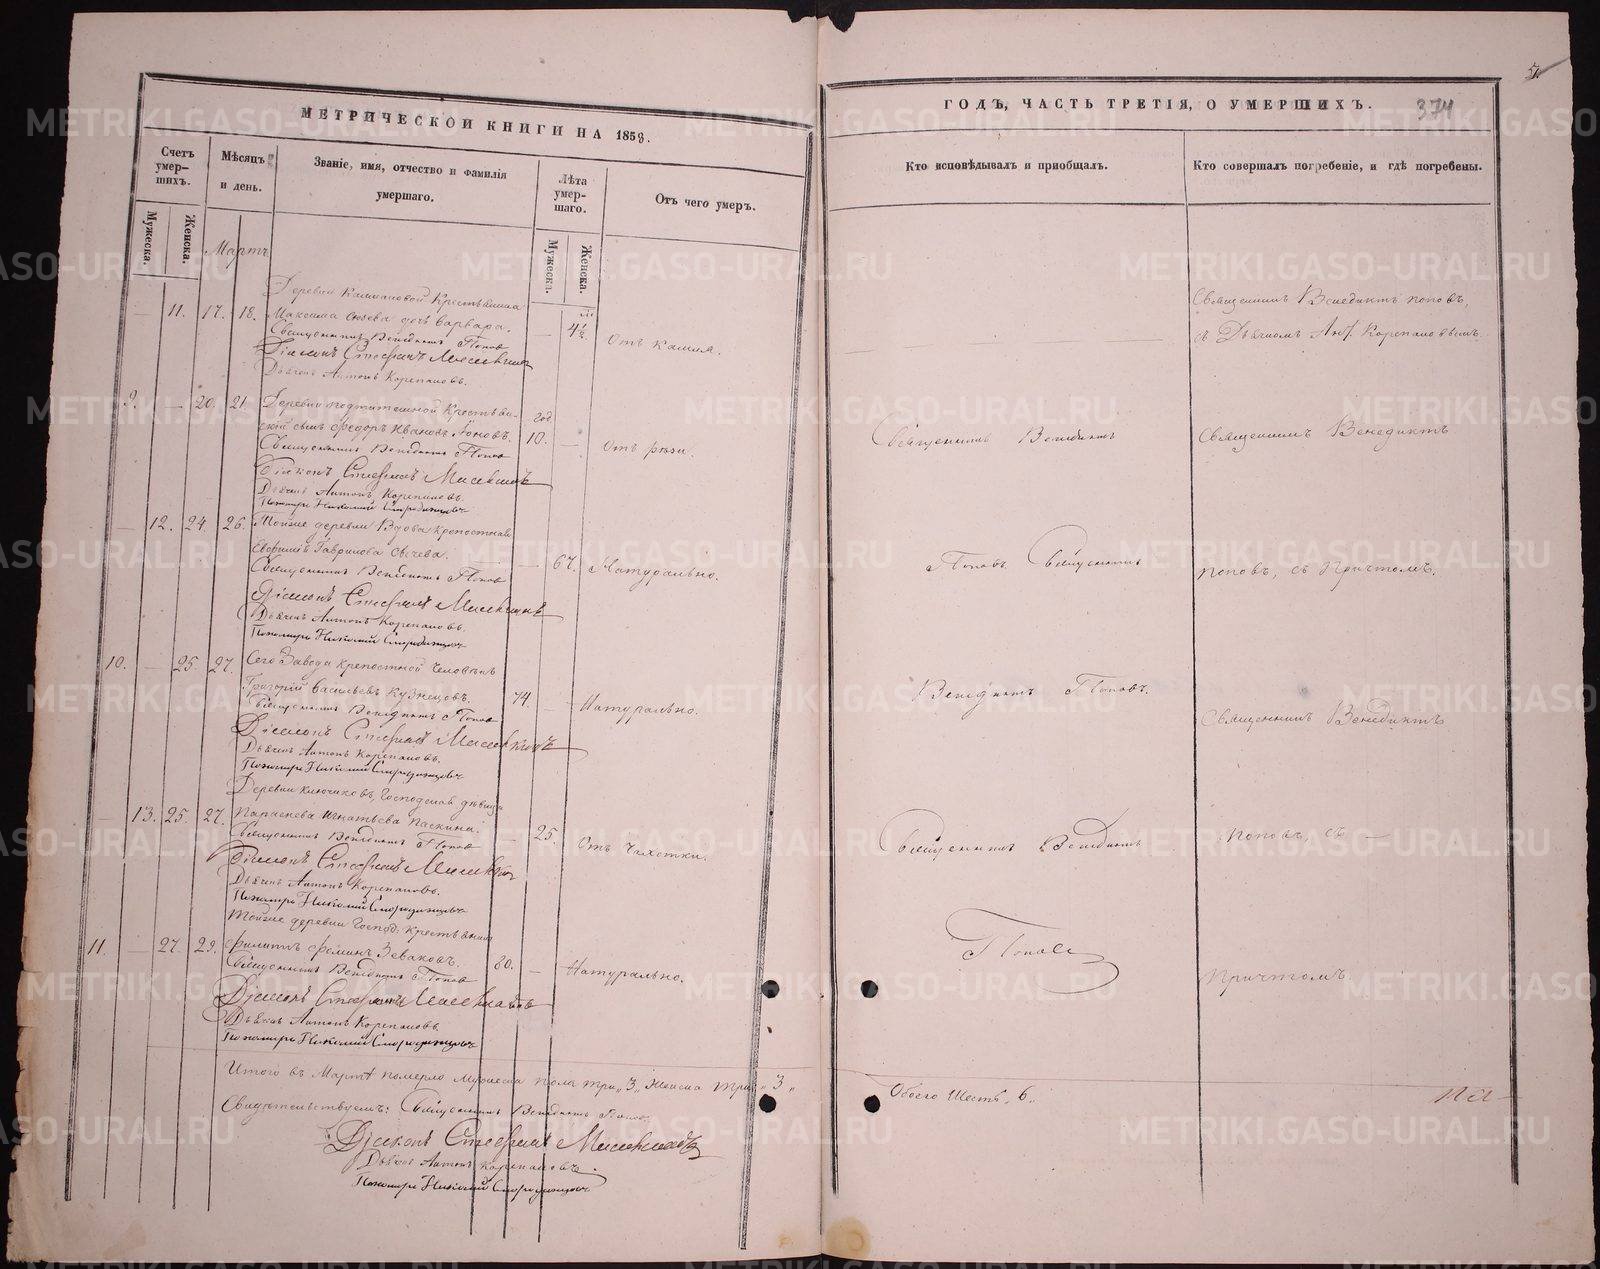 МЕТРИЧЕСКОЙ КНИГИ НА 1858.
Счетъ умер-шихъ.
Мужеска.
Женска.
Мѣсяцъ и день.
Званіе, имя, отчество и фамилія
умершаго.
Лѣта умер-шаго.
Мужеска.
Женска.
Отъ чего умеръ.
Мартъ
— 11. 17. 18.
Максима дочь Варвара.
Священникъ Венедиктъ Попов
Діаконъ Стефанъ
Дьячекъ Антонъ Корепановъ.
— 4½
Отъ кашля.
9. — 20. 21
скій сынъ Федоръ Ивановъ Поповъ.
Священникъ Венедиктъ Попов
Діаконъ Стефанъ
Дьячекъ Антонъ Корепановъ.
Пономарь Николай Смородинцовъ
год
10. —
Отъ рѣзи.
— 12. 24. 26.
Тойже деревни Вдова крепостная
Евфимія Гаврилова Сычева.
Священникъ Венедиктъ Попов
Діаконъ Стефанъ
Дьячекъ Антонъ Корепановъ.
Пономарь Николай Смородинцовъ
— 67.
Натурально.
10. — 25. 27.
Сего Завода крепостной человѣкъ
Григорій Васильевъ Кузнецовъ.
Священникъ Венедиктъ Попов
Діаконъ Стефанъ
Дьячекъ Антонъ Корепановъ.
Пономарь Николай Смородинцовъ
74. —
Натурально.
— 13. 25. 27.
Деревни Ключиковъ, Господская дѣвица
Параскева Игнатьева Паскина.
Священникъ Венедиктъ Попов
Діаконъ Стефанъ
Дьячекъ Антонъ Корепановъ.
Пономарь Николай Смородинцовъ
— 25.
Отъ чахотки.
11. — 27. 29.
Тойже деревни Господ: Крестьянинъ
Филиппъ Фоминъ Зеваковъ.
Священникъ Венедиктъ Попов
Діаконъ Стефанъ
Дьячекъ Антонъ Корепановъ.
Пономарь Николай Смородинцовъ
80. —
Натурально.
Итого въ Мартѣ померло Мужеска пола три „3„ Женска три „3„
Свидѣтельствуемъ: Священникъ Венедиктъ Попов
Діаконъ Стефанъ
Дьячекъ Антонъ Корепановъ.
Пономарь Николай Смородинцовъ
ГОДЪ, ЧАСТЬ ТРЕТІЯ, О УМЕРШИХЪ.
374
Кто исповѣдывалъ и приобщалъ.
Кто совершалъ погребеніе, и гдѣ погребены.
Священникъ Венедиктъ Поповъ,
съ Дьячкомъ Ант. Корепановымъ.
Священникъ Венедиктъ
Священникъ Венедиктъ
Поповъ Священникъ
Поповъ, съ Причтомъ.
Венедиктъ Поповъ.
Священникъ Венедиктъ
Священникъ Венедиктъ
Поповъ, съ —
Поповъ
Причтомъ.
Обоего Шесть „6„
METRIKI.GASO-URAL.RU